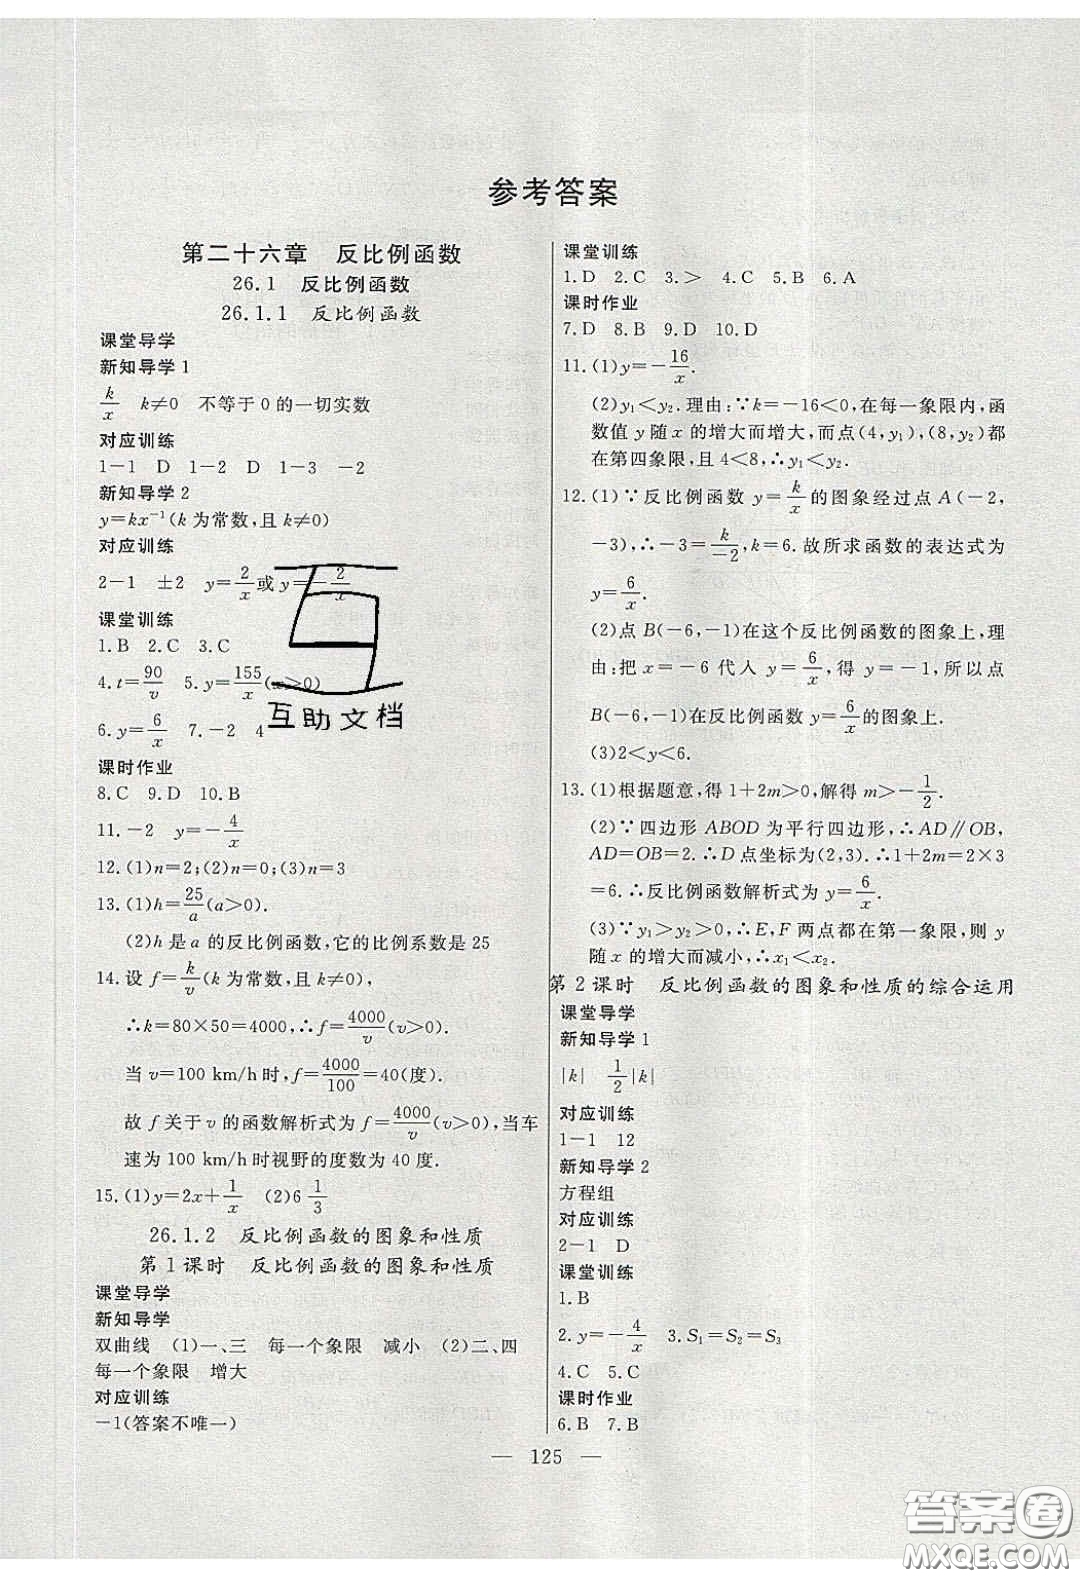 参考答案
第二十六章　反比例函数
26.1　反比例函数
26.1.1　反比例函数
课堂导学
新知导学1
k/x　k≠0　不等于0的一切实数
对应训练
1－1　D　1－2　D　1－3　－2
新知导学2
y=kx⁻¹(k为常数,且k≠0)
对应训练
2－1　±2　y=2/x或y=－2/x
课堂训练
1.B　2.C　3.C
4.t=90/v　5.y=155/x(x>0)
6.y=6/x　7.－2　4
课时作业
8.C　9.D　10.B
11.－2　y=－4/x
12.(1)n=2;(2)n=0;(3)n=3
13.(1)h=25/a(a>0).
(2)h是a的反比例函数,它的比例系数是25
14.设f=k/v(k为常数,k≠0),
∴k=80×50=4000,∴f=4000/v(v>0).
当v=100 km/h时,f=4000/100=40(度).
故f关于v的函数解析式为f=4000/v(v>0),当车
速为100 km/h时视野的度数为40度.
15.(1)y=2x+1/x　(2)6 1/3
26.1.2　反比例函数的图象和性质
第1课时　反比例函数的图象和性质
课堂导学
新知导学
双曲线　(1)一、三　每一个象限　减小　(2)二、四
每一个象限　增大
对应训练
－1(答案不唯一)
课堂训练
1.D　2.C　3.>　4.C　5.B　6.A
课时作业
7.D　8.B　9.D　10.D
11.(1)y=－16/x.
(2)y₁<y₂.理由:∵k=－16<0,在每一象限内,函
数值y随x的增大而增大,而点(4,y₁),(8,y₂)都
在第四象限,且4<8,∴y₁<y₂.
12.(1)∵反比例函数y=k/x的图象经过点A(－2,
－3),∴－3=k/－2,k=6.故所求函数的表达式为
y=6/x.
(2)点B(－6,－1)在这个反比例函数的图象上,理
由:把x=－6代入y=6/x,得y=－1,所以点
B(－6,－1)在反比例函数y=6/x的图象上.
(3)2<y<6.
13.(1)根据题意,得1+2m>0,解得m>－1/2.
(2)∵四边形ABOD为平行四边形,∴AD∥OB,
AD=OB=2.∴D点坐标为(2,3).∴1+2m=2×3
=6.∴反比例函数解析式为y=6/x.
(3)∵y₁>y₂>0,∴E,F两点都在第一象限,则y
随x的增大而减小,∴x₁<x₂.
第2课时　反比例函数的图象和性质的综合运用
课堂导学
新知导学1
|k|　1/2|k|
对应训练
1－1　12
新知导学2
方程组
对应训练
2－1　D
课堂训练
1.B
2.y=－4/x　3.S₁=S₂=S₃
4.C　5.C
课时作业
6.B　7.B
— 125 —
互助文档
答案圈
MXQE.COM